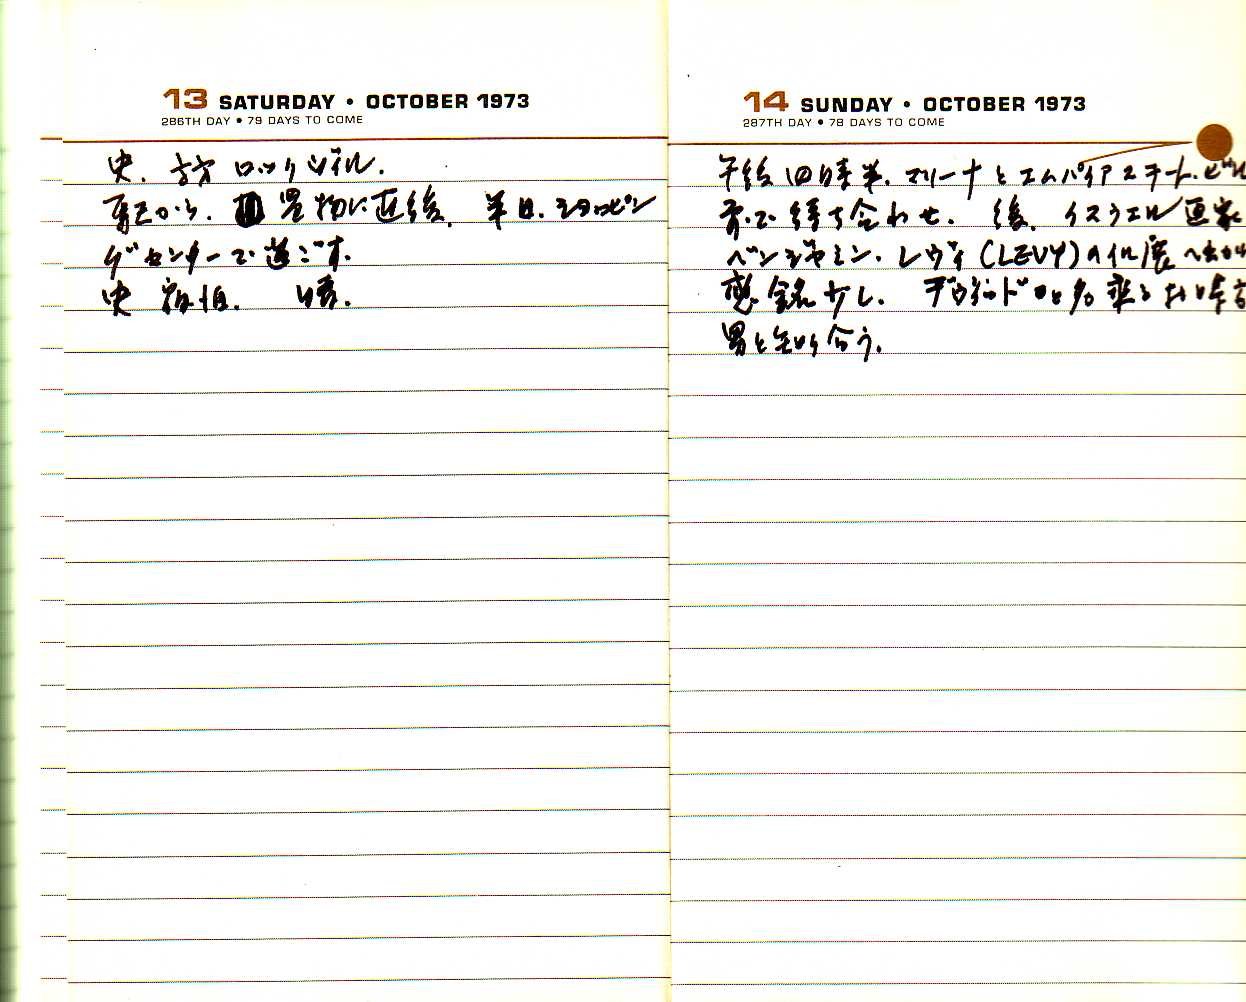 13 SATURDAY • OCTOBER 1973
286TH DAY • 79 DAYS TO COME
史、 ロックヴィル.
から. 買物に 後. 半日. ショッピン
グセンターで過ごす.
史
14 SUNDAY • OCTOBER 1973
287TH DAY • 78 DAYS TO COME
午後四時半. マリーナとエムパイアステート.ビル
前で待ち合わせ. 後. イスラエル画家
ベンジャミン.レヴィ(LEVY)の個展へ出かけ
感銘少し. デヴィッドと名乗る
男と知り合う.